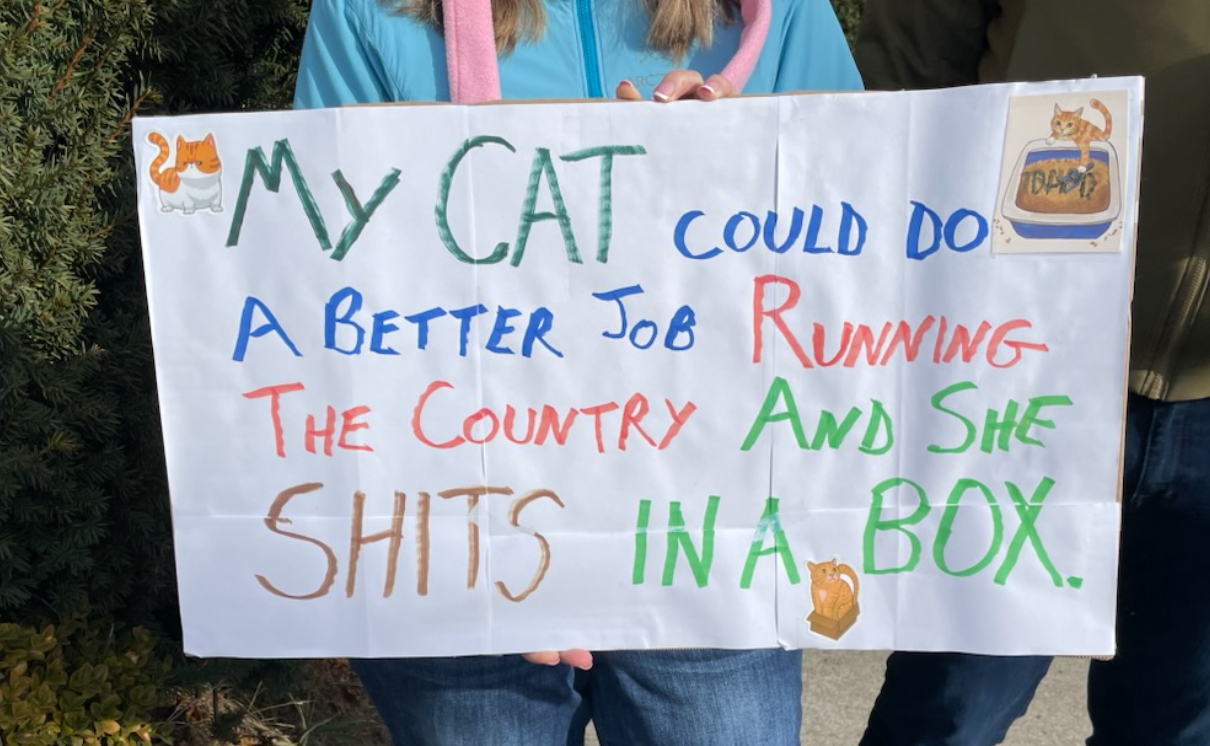 MY CAT COULD DO
A BETTER JOB RUNNING
THE COUNTRY AND SHE
SHITS IN A BOX.